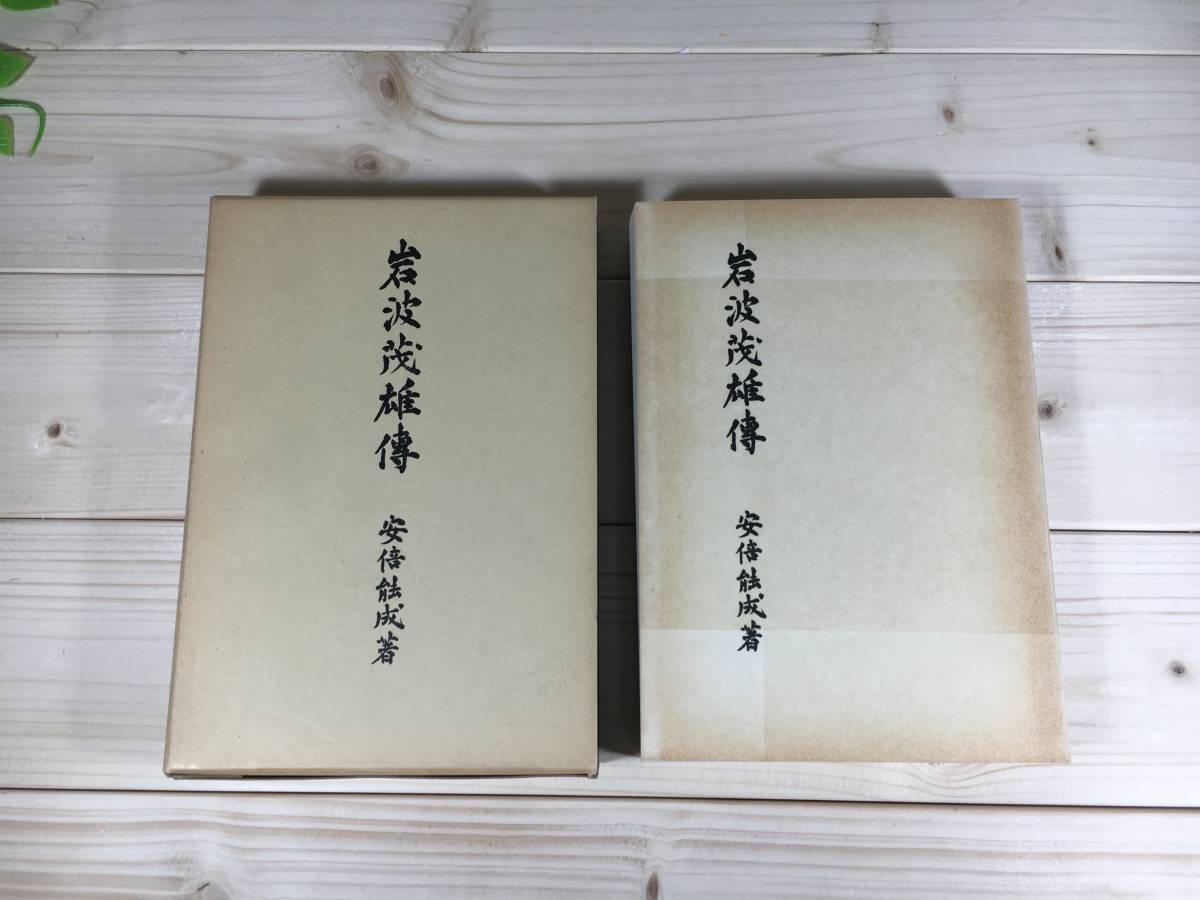 岩波茂雄傳
安倍能成著
岩波茂雄傳
安倍能成著